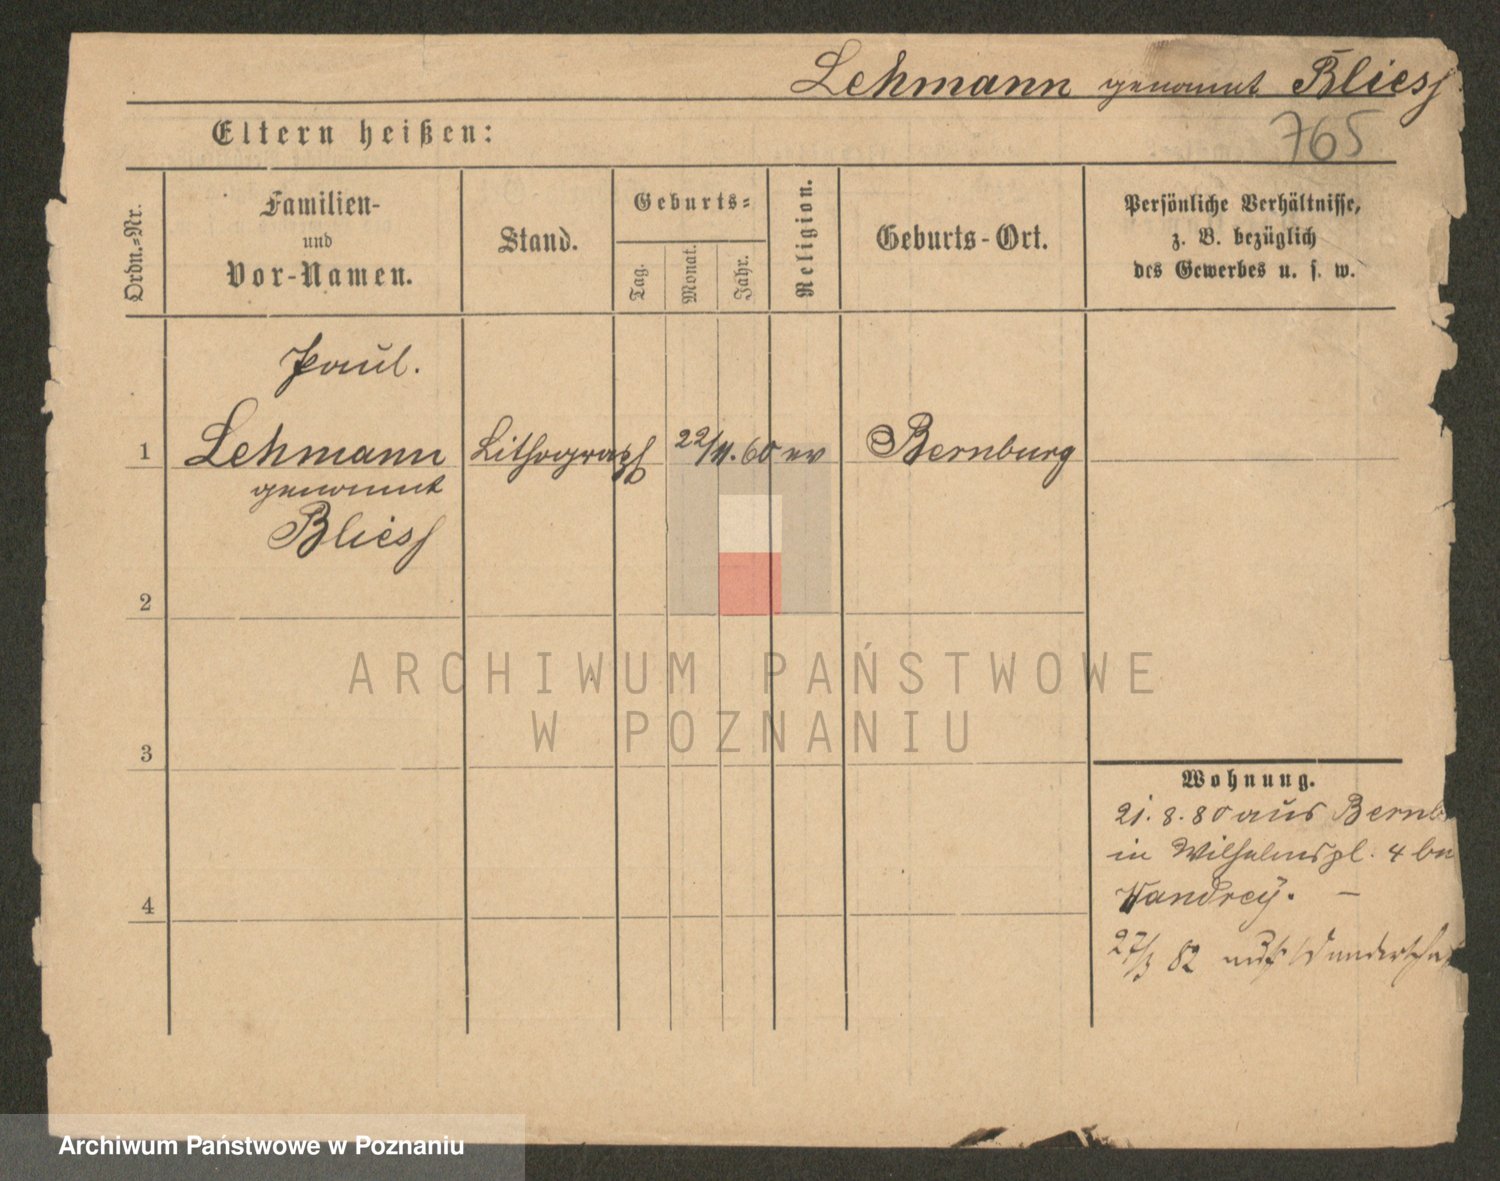 Lehmann genannt Bliess
765
Eltern heißen:
Ordn.-Nr.
Familien-
und
Vor-Namen.
Stand.
Geburts-
Tag.
Monat.
Jahr.
Religion.
Geburts-Ort.
Persönliche Verhältnisse,
z. B. bezüglich
des Gewerbes u. s. w.
Paul.
1 Lehmann Lithograph 22/11.60 ev Bernburg
genannt
Bliess
2
ARCHIWUM PAŃSTWOWE
W POZNANIU
3
Wohnung.
21.8.80 aus Bernb
in Wilhelmspl. 4 bei
Wandrey. —
4
27/3 82 auf Wanderscha
Archiwum Państwowe w Poznaniu